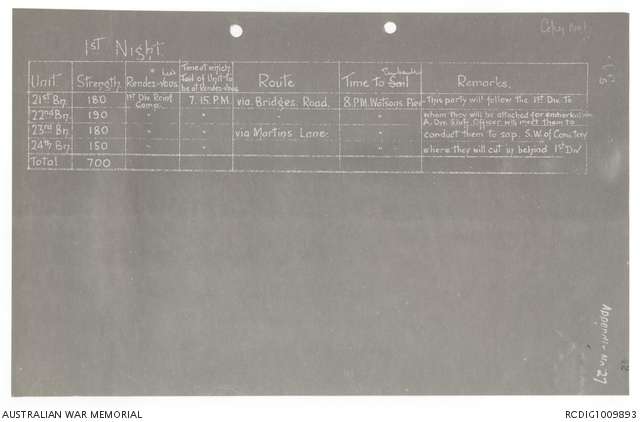 1st Night.
Unit. Strength. Rendez-vous. Time at which Tail of Unit to be at Rendez-vous Route Time to Sail Embark Remarks.
21st Bn. 180 1st Div. Reinf Camp. 7.15. P.M. via Bridges Road. 8 P.M. Watsons Pier This party will follow the 1st Div. To
22nd Bn. 190 " " " " whom they will be attached for embarkation
A. Div. Staff Officer will meet them to
23rd Bn. 180 " " via Martins Lane. " conduct them to sap. S.W. of Cemetery
24th Bn. 150 " " " " where they will cut in behind 1st Div
Total 700
Appendix No. 27
AUSTRALIAN WAR MEMORIAL
RCDIG1009893